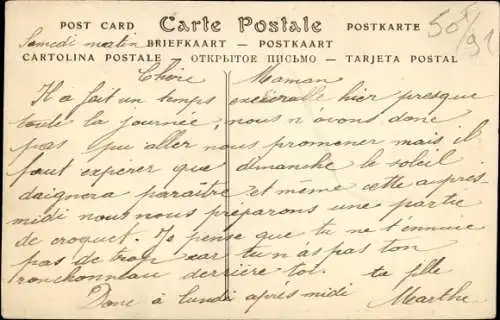 POST CARD Carte Postale POSTKARTE
Samedi matin BRIEFKAART — POSTKAART
CARTOLINA POSTALE — ОТКРЫТОЕ ПИСЬМО — TARJETA POSTAL
Chère Maman
Il a fait un temps exécrable, hier presque
toute la journée, nous n'avons donc
pas pu aller nous promener mais il
faut expérer que dimanche le soleil
daignera paraître et même cette après-
midi nous nous préparons une partie
de croquet. Je pense que tu ne t'ennuie
pas de trop car tu n'as pas ton
ronchonneau derrière toi. ta fille
Donc à lundi après midi Marthe